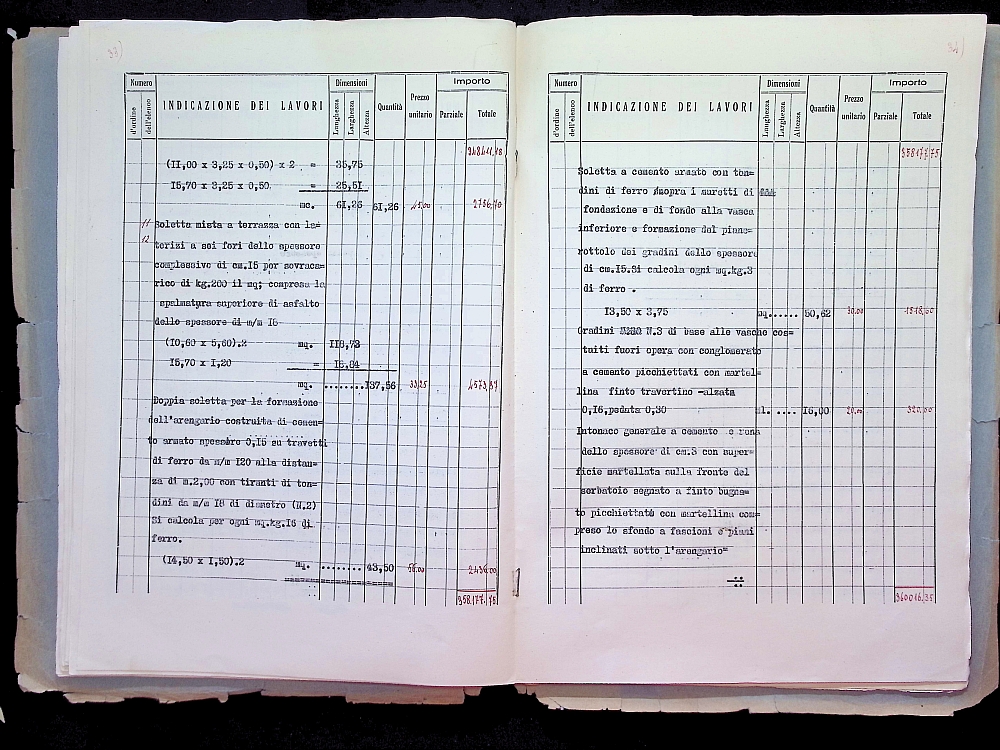 33)
Numero
d'ordine
dell'elenco
INDICAZIONE DEI LAVORI
Dimensioni
Lunghezza
Larghezza
Altezza
Quantità
Prezzo
unitario
Importo
Parziale
Totale
(II,00 x 3,25 x 0,50) x 2 = 35,75
I5,70 x 3,25 x 0,50 = 25,5I
mc. 6I,26 6I,26 45.00 2756,70
11 Soletta mista a terrazza con la=
12 terizi a sei fori dello spessore
complessivo di cm.I5 per sovraca=
rico di kg.200 il mq; compresa la
spalmatura superiore di asfalto
dello spessore di m/m I6
(I0,60 x 5,60).2 mq. II8,72
I5,70 x I,20 = I8,84
mq. ........I37,56 33,25 4573,87
Doppia soletta per la formazione
dell'arengario costruita di cemen=
to armato spessore 0,I5 su travetti
di ferro da m/m I20 alla distan=
za di m.2,00 con tiranti di ton=
dini da m/m I8 di diametro (N.2)
Si calcola per ogni mq.kg.I6 di
ferro.
(I4,50 x I,50).2 mq. ........43,50 56.00 2436.00
358.177.75
34)
Numero
d'ordine
dell'elenco
INDICAZIONE DEI LAVORI
Dimensioni
Lunghezza
Larghezza
Altezza
Quantità
Prezzo
unitario
Importo
Parziale
Totale
358177.75
Soletta a cemento armato con ton=
dini di ferro sopra i muretti di
fondazione e di fondo alla vasca
inferiore e formazione del piane=
rottolo dei gradini dello spessore
di cm.I5.Si calcola ogni mq.kg.3
di ferro .
I3,50 x 3,75 mq...... 50,62 30.00 1518,60
Gradini N.3 di base alle vasche cos=
tuiti fuori opera con conglomerato
a cemento picchiettati con martel=
lina finto travertino -alzata
0,I6,pedata 0,30 ml. ..... I6,00 20.00 320.00
Intonaco generale a cemento e rena
dello spessore di cm.3 con super=
ficie martellata sulla fronte del
serbatoio segnato a finto bugna=
to picchiettato con martellina com=
preso lo sfondo a fascioni e piani
inclinati sotto l'arengario=
360016.35